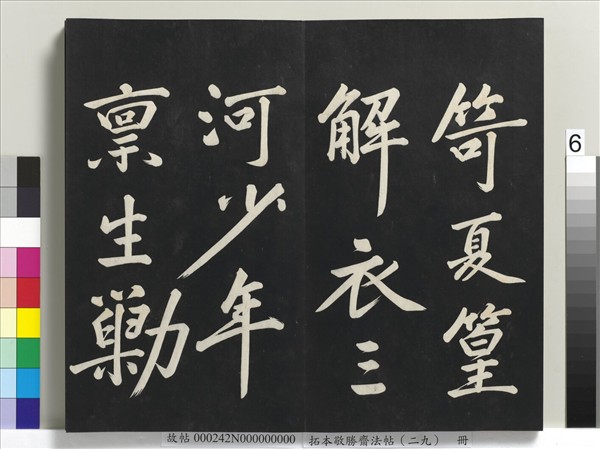 笴夏篁
解衣三
河少年
禀生勦
故帖 000242N000000000 拓本敬勝齋法帖（二九） 冊
6